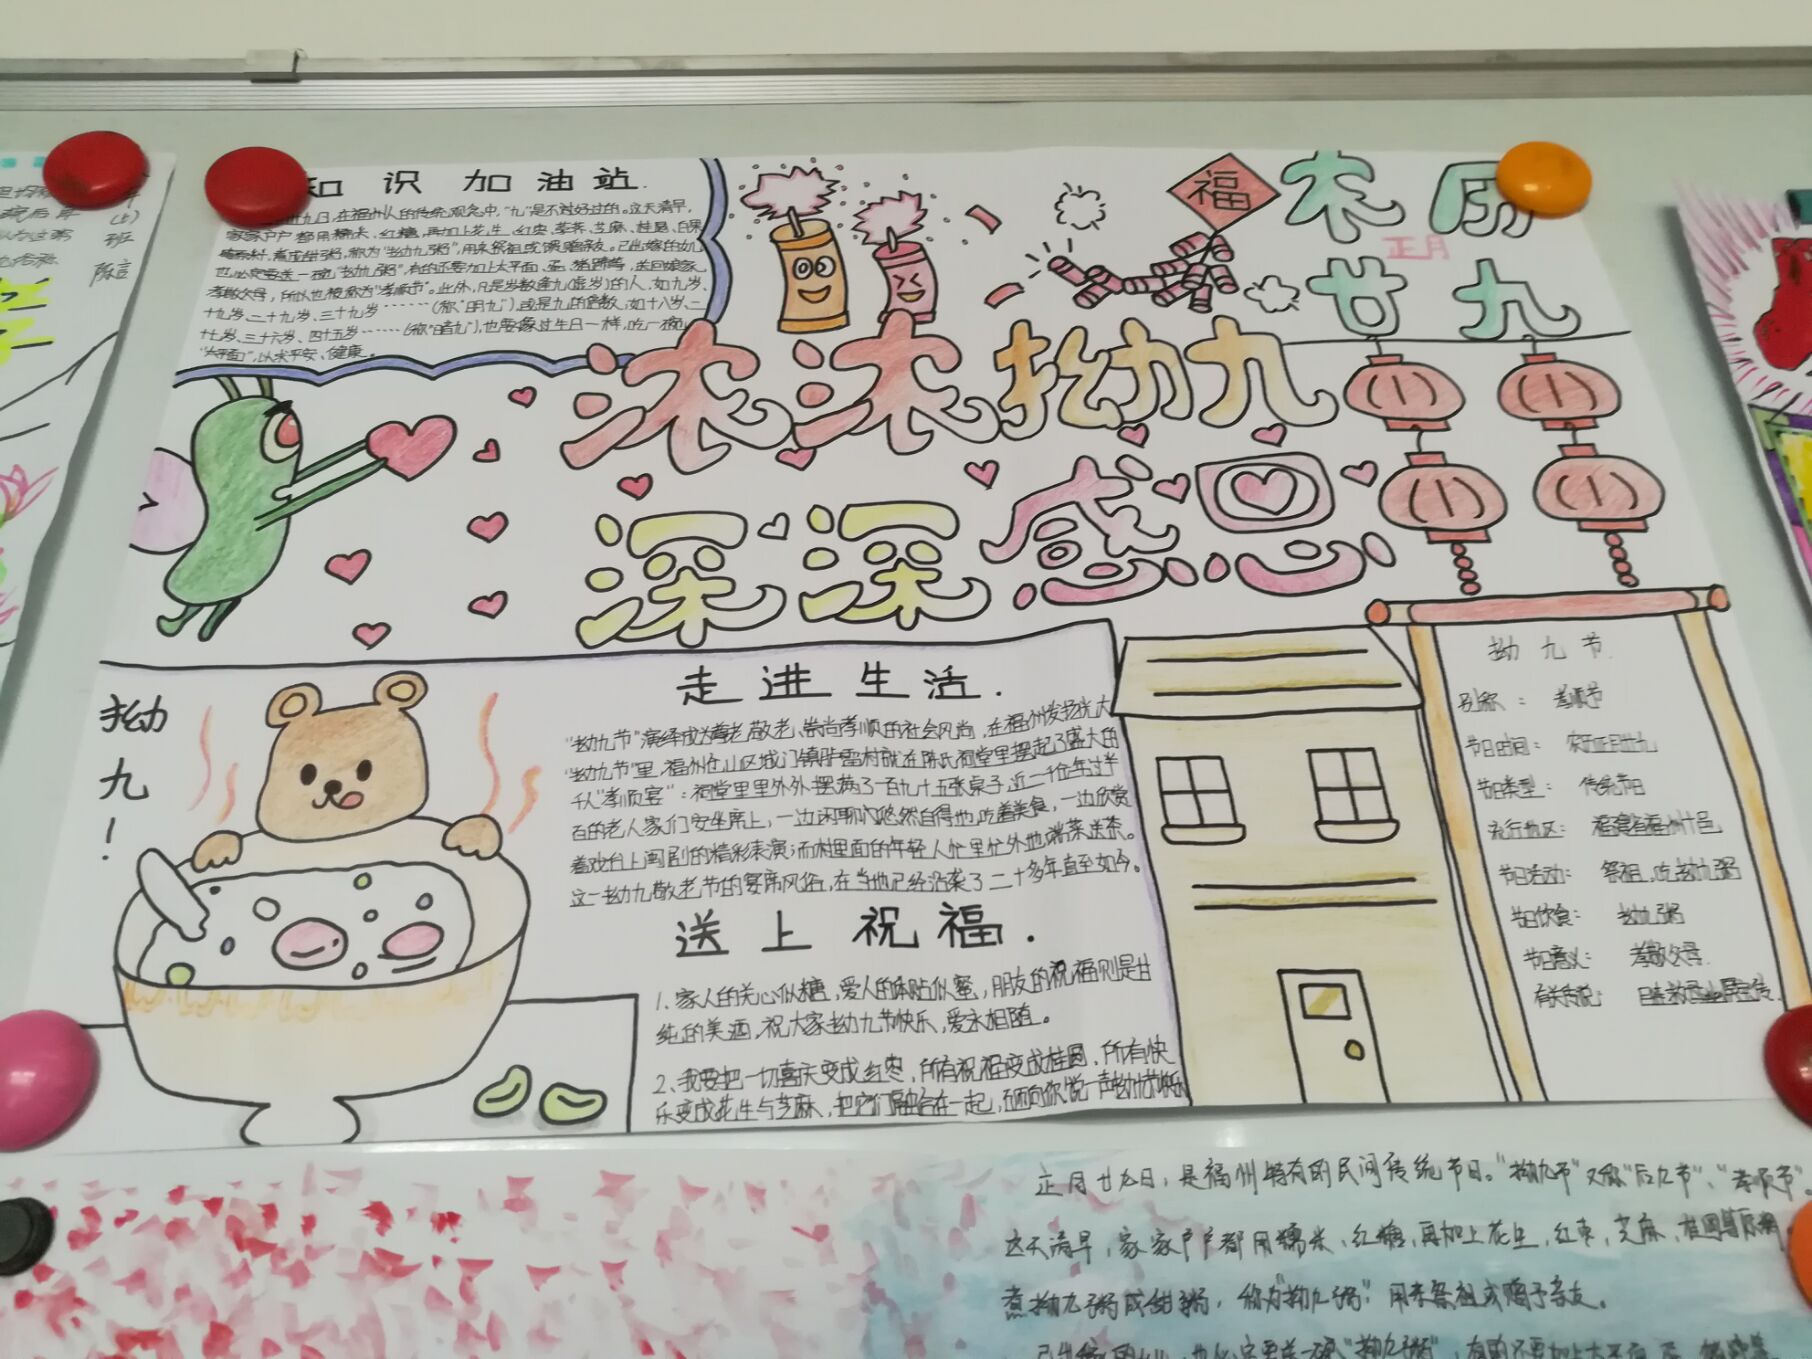 知识加油站.
廿九日,在福州人的传统观念中,“九”是不太好过的。这天清早,
家家户户都用糯米、红糖,再加上花生、红枣、荸荠、芝麻、桂圆、白果
等原料,煮成甜粥,称为“拗九粥”,用来祭祖或馈赠亲友。已出嫁的女儿
也必定要送一碗“拗九粥”,有的还要加上太平面、蛋、猪蹄等,送回娘家,
孝敬父母,所以也被称为“孝顺节”。此外,凡是岁数逢九(虚岁)的人,如九岁、
十九岁、二十九岁、三十九岁……(称“明九”),或是九的倍数,如十八岁、二
十七岁、三十六岁、四十五岁……(称“暗九”),也要像过生日一样,吃一碗
“太平面”,以求平安、健康。
福
农历
正月
廿九
浓浓拗九
深深感恩
拗九!
走进生活.
“拗九节”演绎成为尊老、敬老、崇尚孝顺的社会风尚,在福州发扬光大
“拗九节”里,福州仓山区城门镇胪雷村就在陈氏祠堂里摆起了盛大的
千人“孝顺宴”:祠堂里里外外摆满了一百九十五张桌子,近一千位年过半
百的老人家们安坐席上,一边闲聊,悠然自得地吃着美食,一边欣赏
着戏台上闽剧的精彩表演;而村里面的年轻人忙里忙外地端菜送茶。
这一拗九敬老节的宴席风俗,在当地已经沿袭了二十多年直至如今。
送上祝福.
1.家人的关心似糖,爱人的体贴似蜜,朋友的祝福则是甘
纯的美酒,祝大家拗九节快乐,爱永相随。
2、我要把一切喜庆变成红枣,所有祝福变成桂圆,所有快
乐变成花生与芝麻,把它们融合在一起,再向你说一声拗九节快乐
拗九节
别称:孝顺节
节日时间:农历正月廿九
节日类型:传统节日
流行地区:福建省福州十邑
节日活动:祭祖、吃拗九粥
节日饮食:拗九粥
节日意义:孝敬父母
有关传说:目连救母
正月廿九日,是福州特有的民间传统节日。“拗九节”又称“后九节”、“孝顺节”。
这天清早,家家户户都用糯米,红糖,再加上花生,红枣,芝麻,桂圆等原料
煮拗九粥成甜粥,称为“拗九粥”,用来祭祖或赠予亲友。